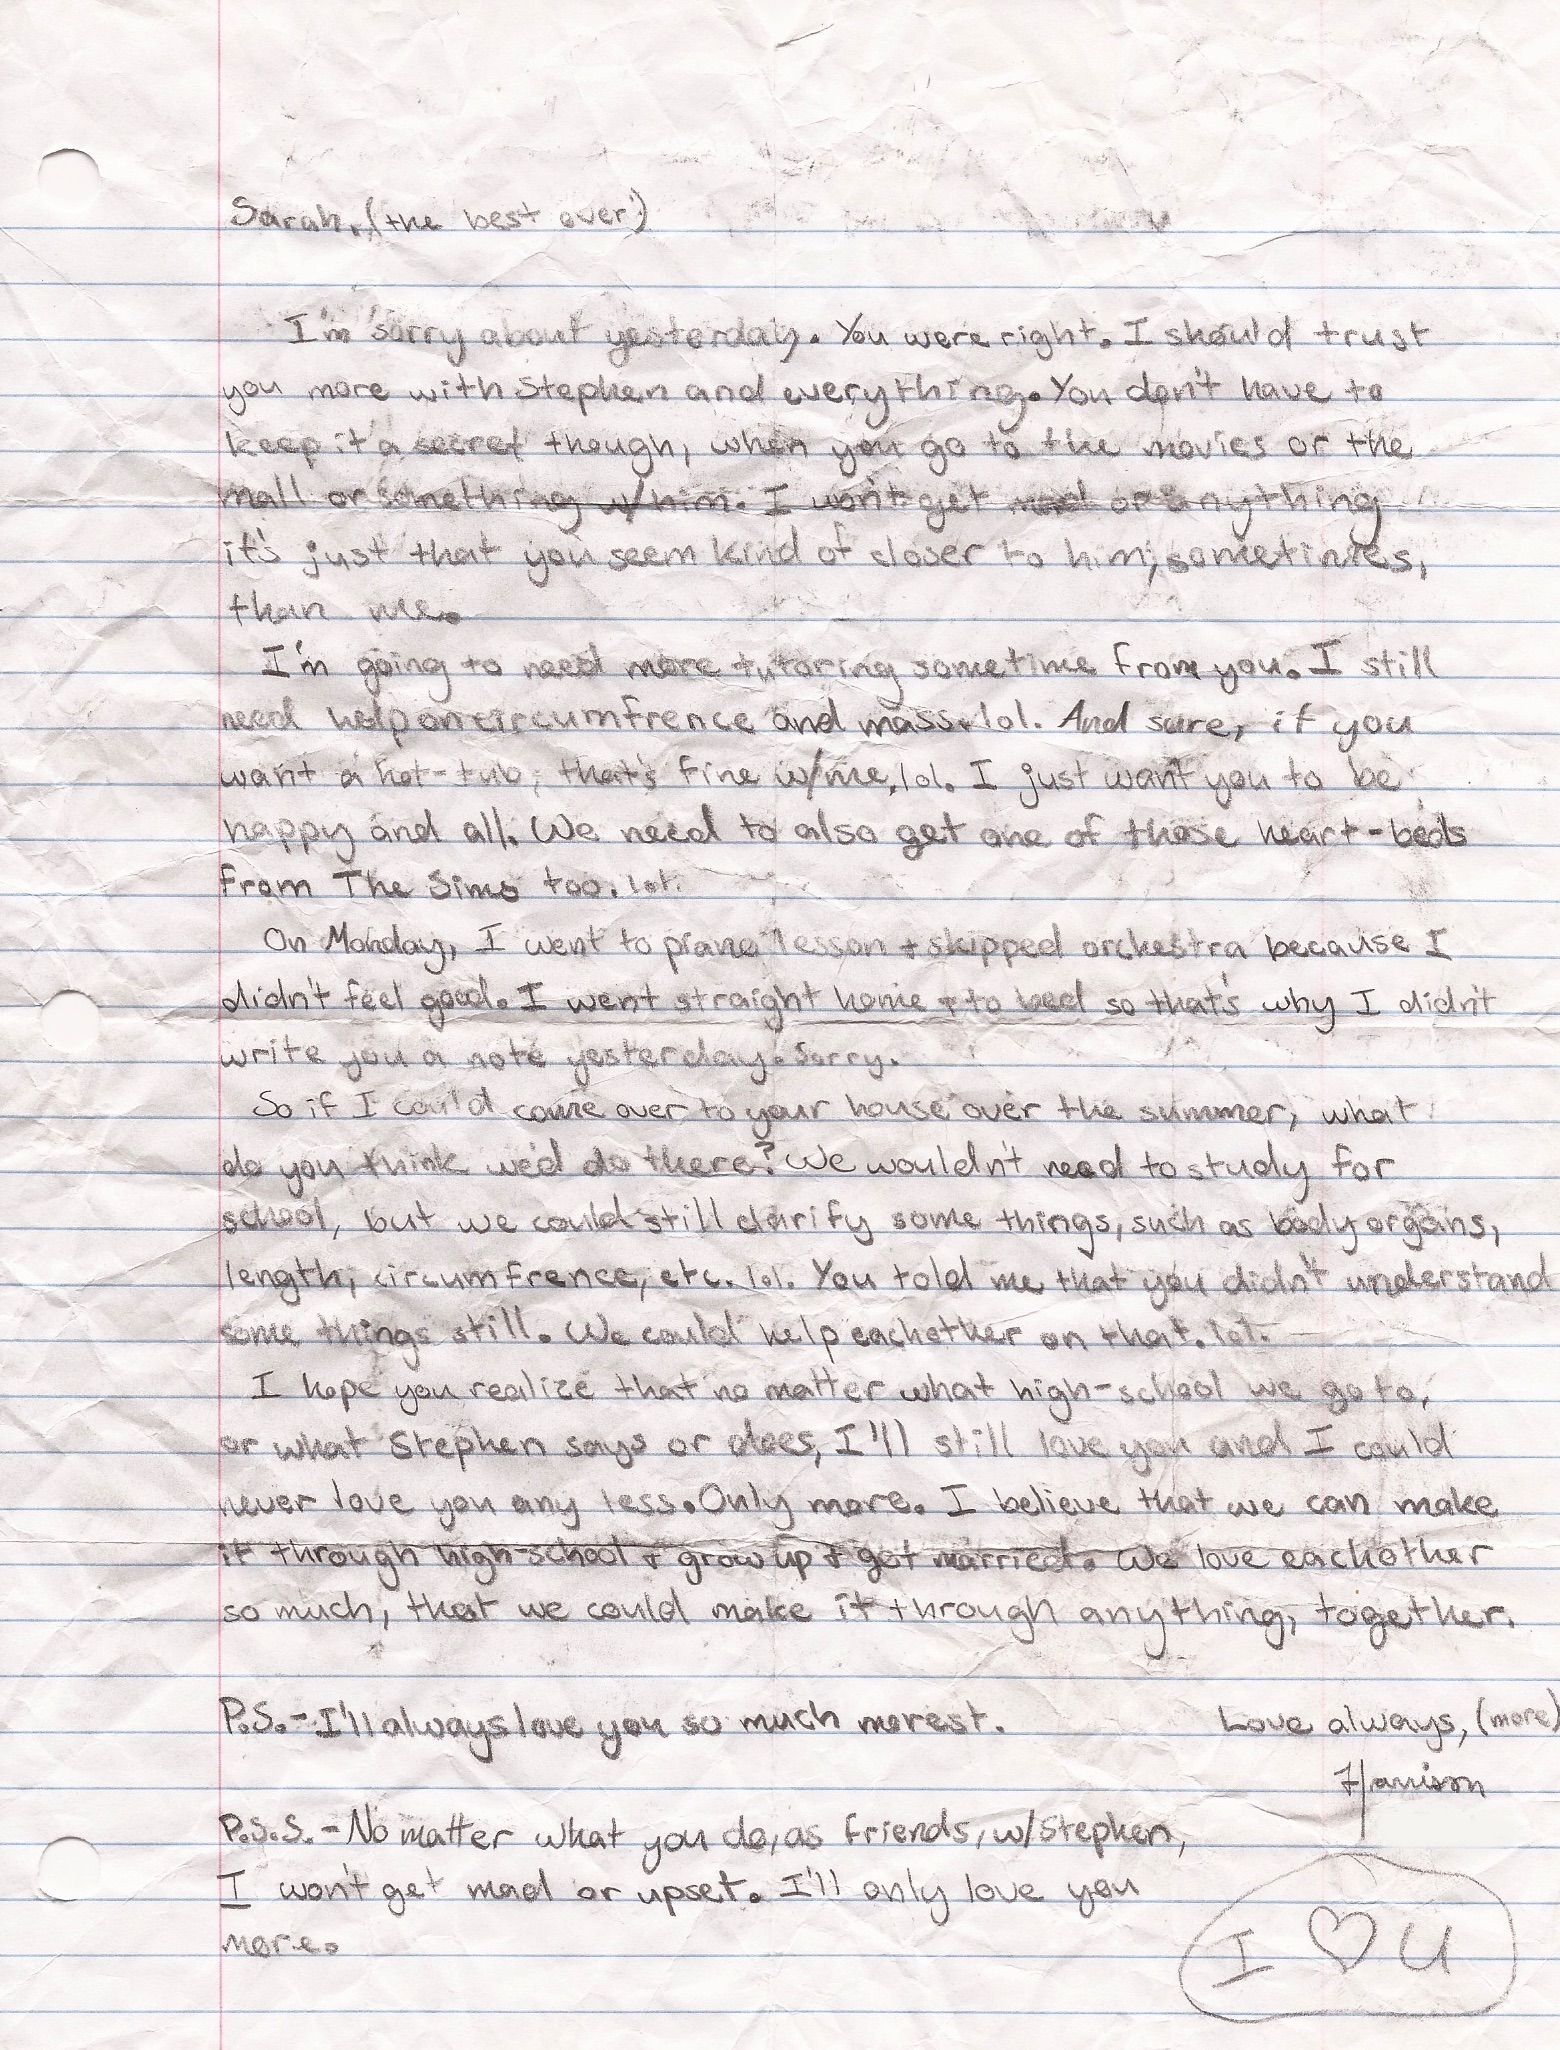 Sarah, (the best over!)
I'm sorry about yesterday. You were right. I should trust
you more with Stephen and everything. You don't have to
keep it a secret though, when you go to the movies or the
mall or something w/ him. I won't get mad or anything
it's just that you seem kind of closer to him, sometimes,
than me.
I'm going to need more tutoring sometime from you. I still
need help on circumfrence and mass. lol. And sure, if you
want a hot-tub, that's fine w/me, lol. I just want you to be
happy and all. We need to also get one of those heart-beds
from The Sims too. lol.
On Monday, I went to piano lesson + skipped orchestra because I
didn't feel good. I went straight home + to bed so that's why I didn't
write you a note yesterday. Sorry.
So if I could come over to your house over the summer, what
do you think we'd do there? We wouldn't need to study for
school, but we could still clarify some things, such as body organs,
length, circumfrence, etc. lol. You told me that you didn't understand
some things still. We could help eachother on that. lol.
I hope you realize that no matter what high-school we go to,
or what Stephen says or does, I'll still love you and I could
never love you any less. Only more. I believe that we can make
it through high-school + grow up + get married. We love eachother
so much, that we could make it through anything, together.
P.S.- I'll always love you so much morest.
Love always, (more)
Harrison
P.S.S.- No matter what you do, as friends, w/Stephen,
I won't get mad or upset. I'll only love you
more.
I ♡ U